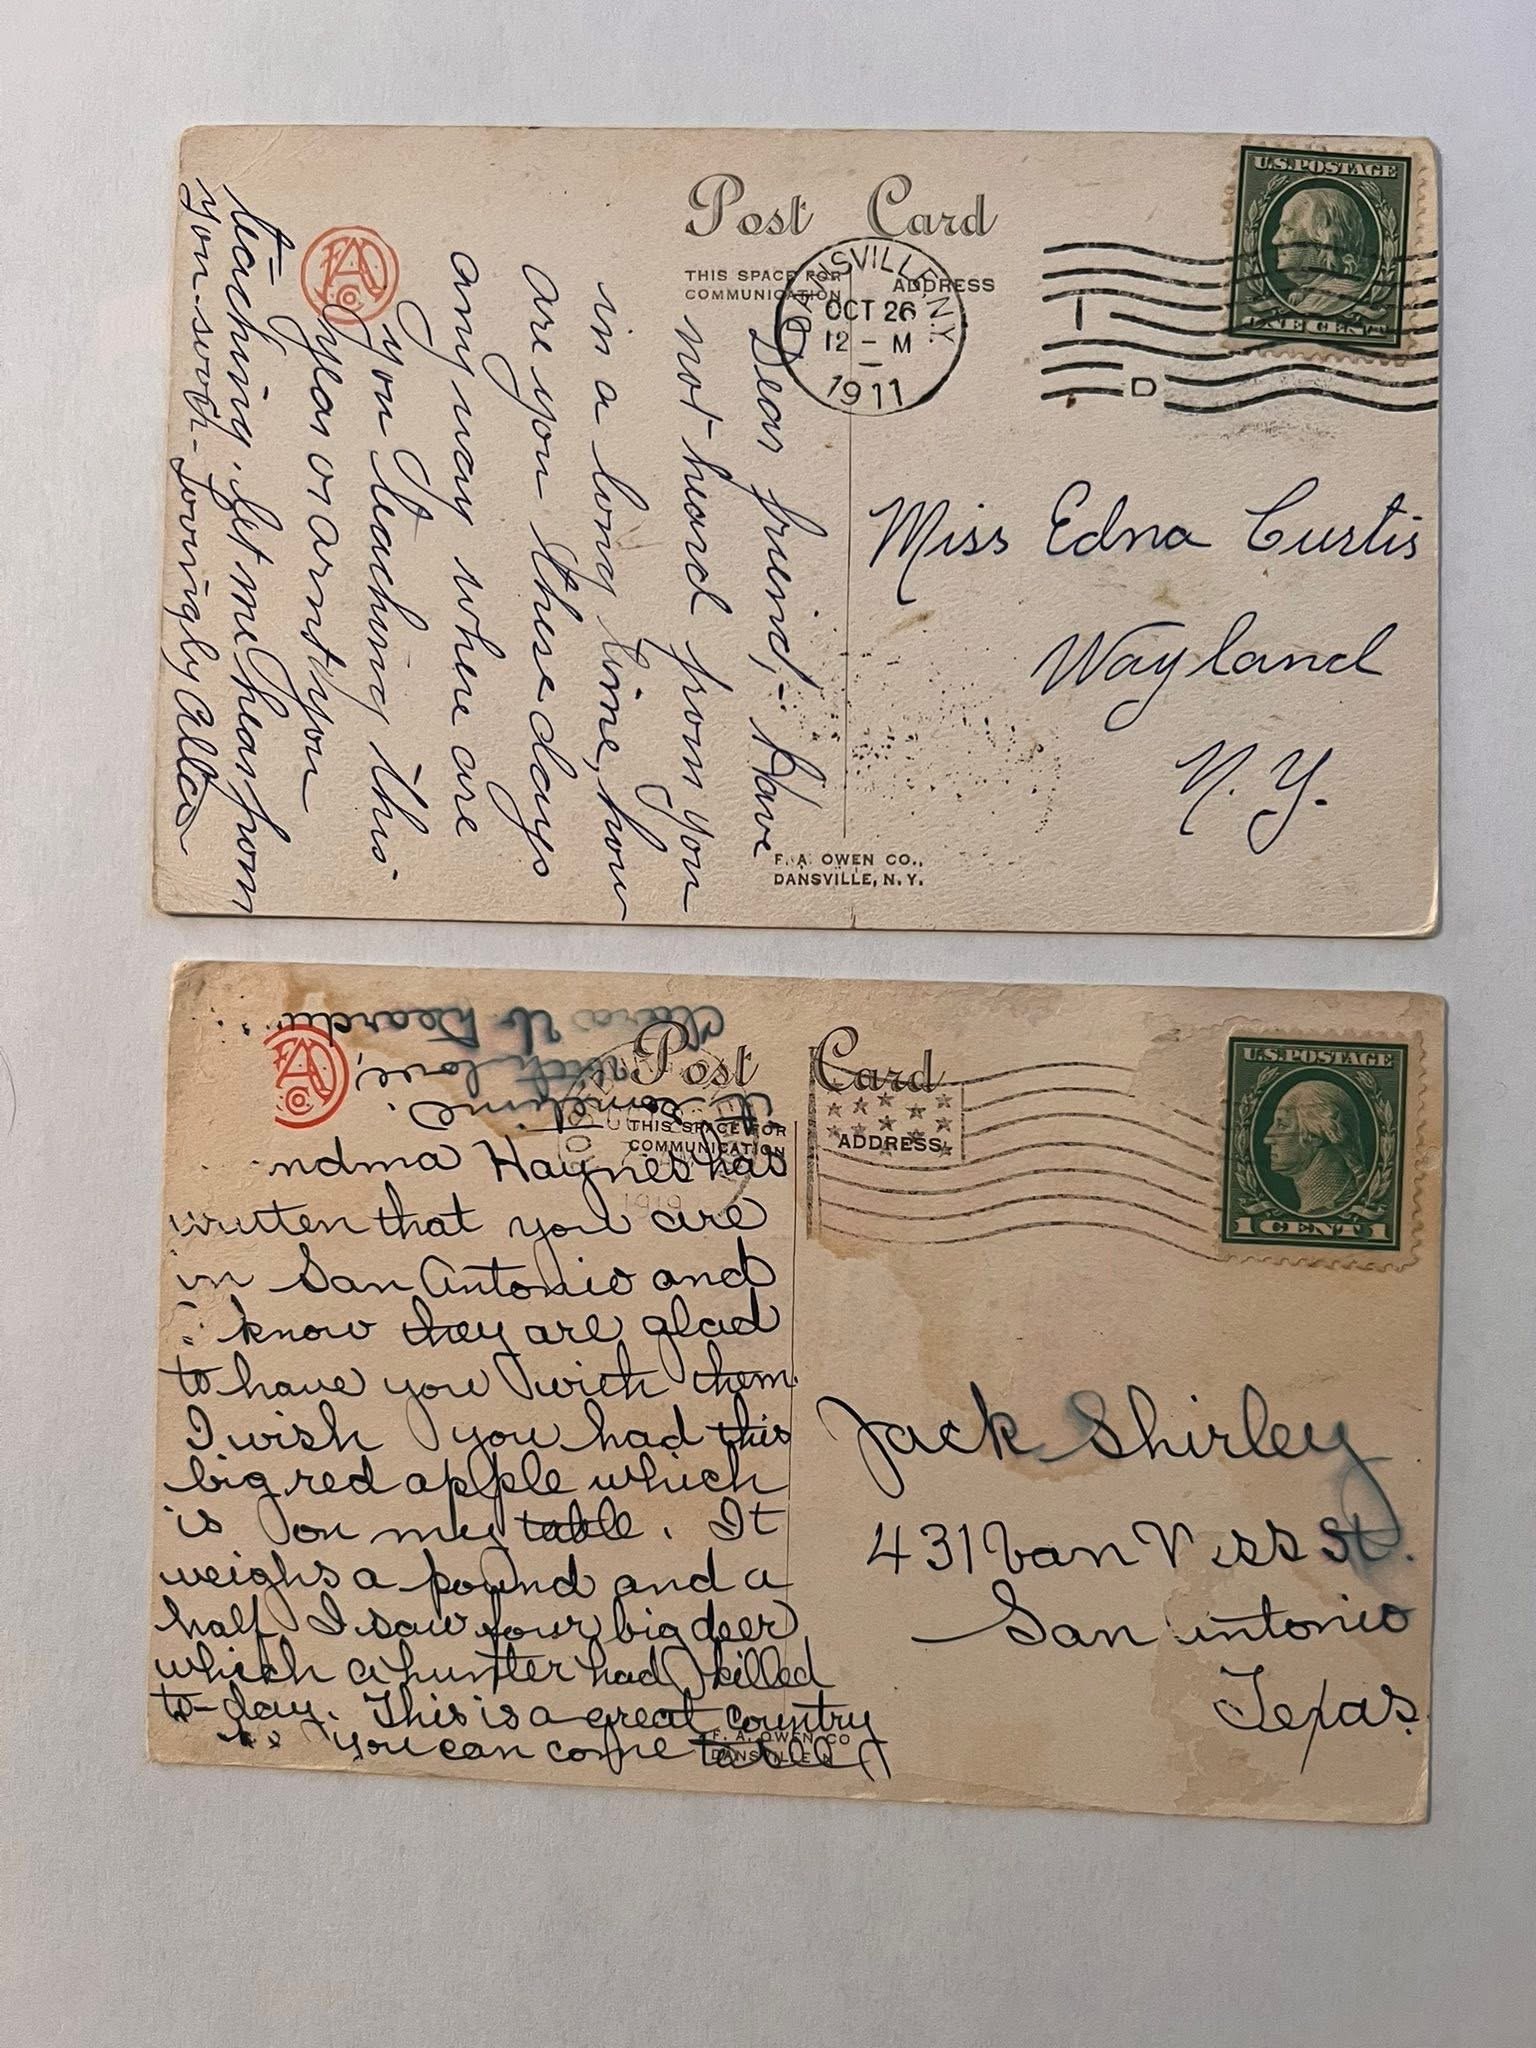 Post Card
THIS SPACE FOR
COMMUNICATION
ADDRESS
U.S. POSTAGE
ONE CENT
DANSVILLE, N.Y.
OCT 26
12 - M
1911
D
Miss Edna Curtis
Wayland
N. Y.
Dear friend,- Have
not heard from you
in a long time, how
are you these days
any way where are
you teaching this
year or arnt you
teaching. Let me hear from
you soon - Lovingly
F. A. OWEN CO.,
DANSVILLE, N. Y.
Post Card
THIS SPACE FOR
COMMUNICATION
ADDRESS
U.S. POSTAGE
1 CENT 1
Jack Shirley
431 Van Ness St.
San Antonio
Texas.
ndma Haynes has
written that you are
in San Antonio and
know they are glad
to have you with them.
I wish you had this
big red apple which
is on my table. It
weighs a pound and a
half. I saw four big deer
which a hunter had killed
to-day. This is a great country
you can come to see
it sometime.
Much love,
Clara
F. A. OWEN CO
DANSVILLE N